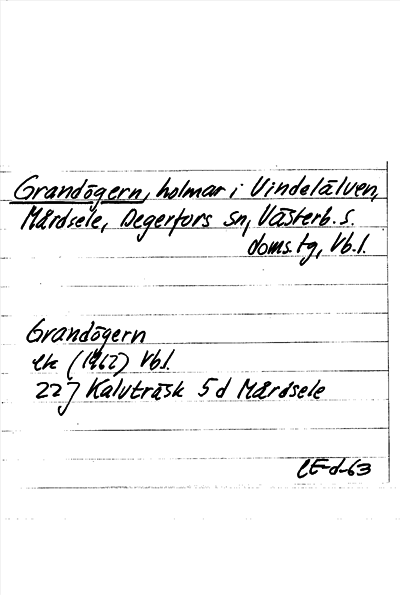 Grandögern, holmar i Vindelälven,
Mårdsele, Degerfors sn, Västerb. s.
doms. tg, Vb. l.
Grandögern
ek (1962) Vb l.
22 J Kalvträsk 5 d Mårdsele
CE-d-63